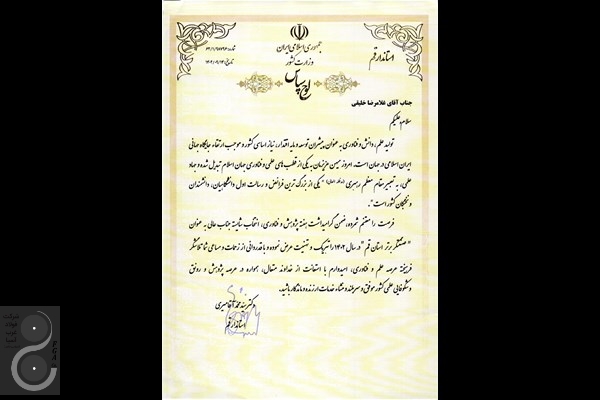 جمهوری اسلامی ایران
وزارت کشور
استاندار قم
لوح سپاس
جناب آقای غلامرضا خلیفی
سلام علیکم
تولید علم، دانش و فناوری به عنوان پیشران توسعه و مایه اقتدار، نیاز اساسی کشور و موجب ارتقاء جایگاه جهانی
ایران اسلامی در جهان است. امروز میهن عزیزمان به یکی از قطب های علمی و فناوری جهان اسلام تبدیل شده و جهاد
علمی، به تعبیر مقام معظم رهبری "یکی از بزرگ ترین فرائض و رسالت اول دانشگاهیان، دانشمندان و
نخبگان کشور است".
فرصت را مغتنم شمرده، ضمن گرامیداشت هفته پژوهش و فناوری، انتخاب شایسته جناب عالی به عنوان
"صنعتگر برتر استان قم" در سال ۱۴۰۲ را تبریک و تهنیت عرض نموده و با قدردانی از زحمات و مساعی شما تلاشگر
فرهیخته عرصه علم و فناوری، امیدوارم با استعانت از خداوند متعال، همواره در عرصه پژوهش و رونق
و شکوفایی علمی کشور موفق و سربلند و منشاء خدمات ارزنده و ماندگار باشید.
دکتر سید محمد آقامیری
استاندار قم
شرکت
فولاد